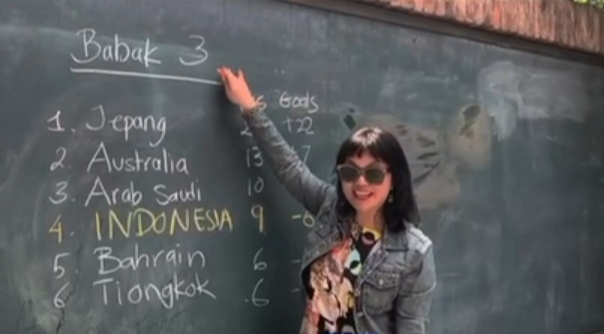 Babak 3
Goals
1. Jepang +22
2. Australia 13
3. Arab Saudi 10
4. INDONESIA 9
5. Bahrain 6
6 Tiongkok 6